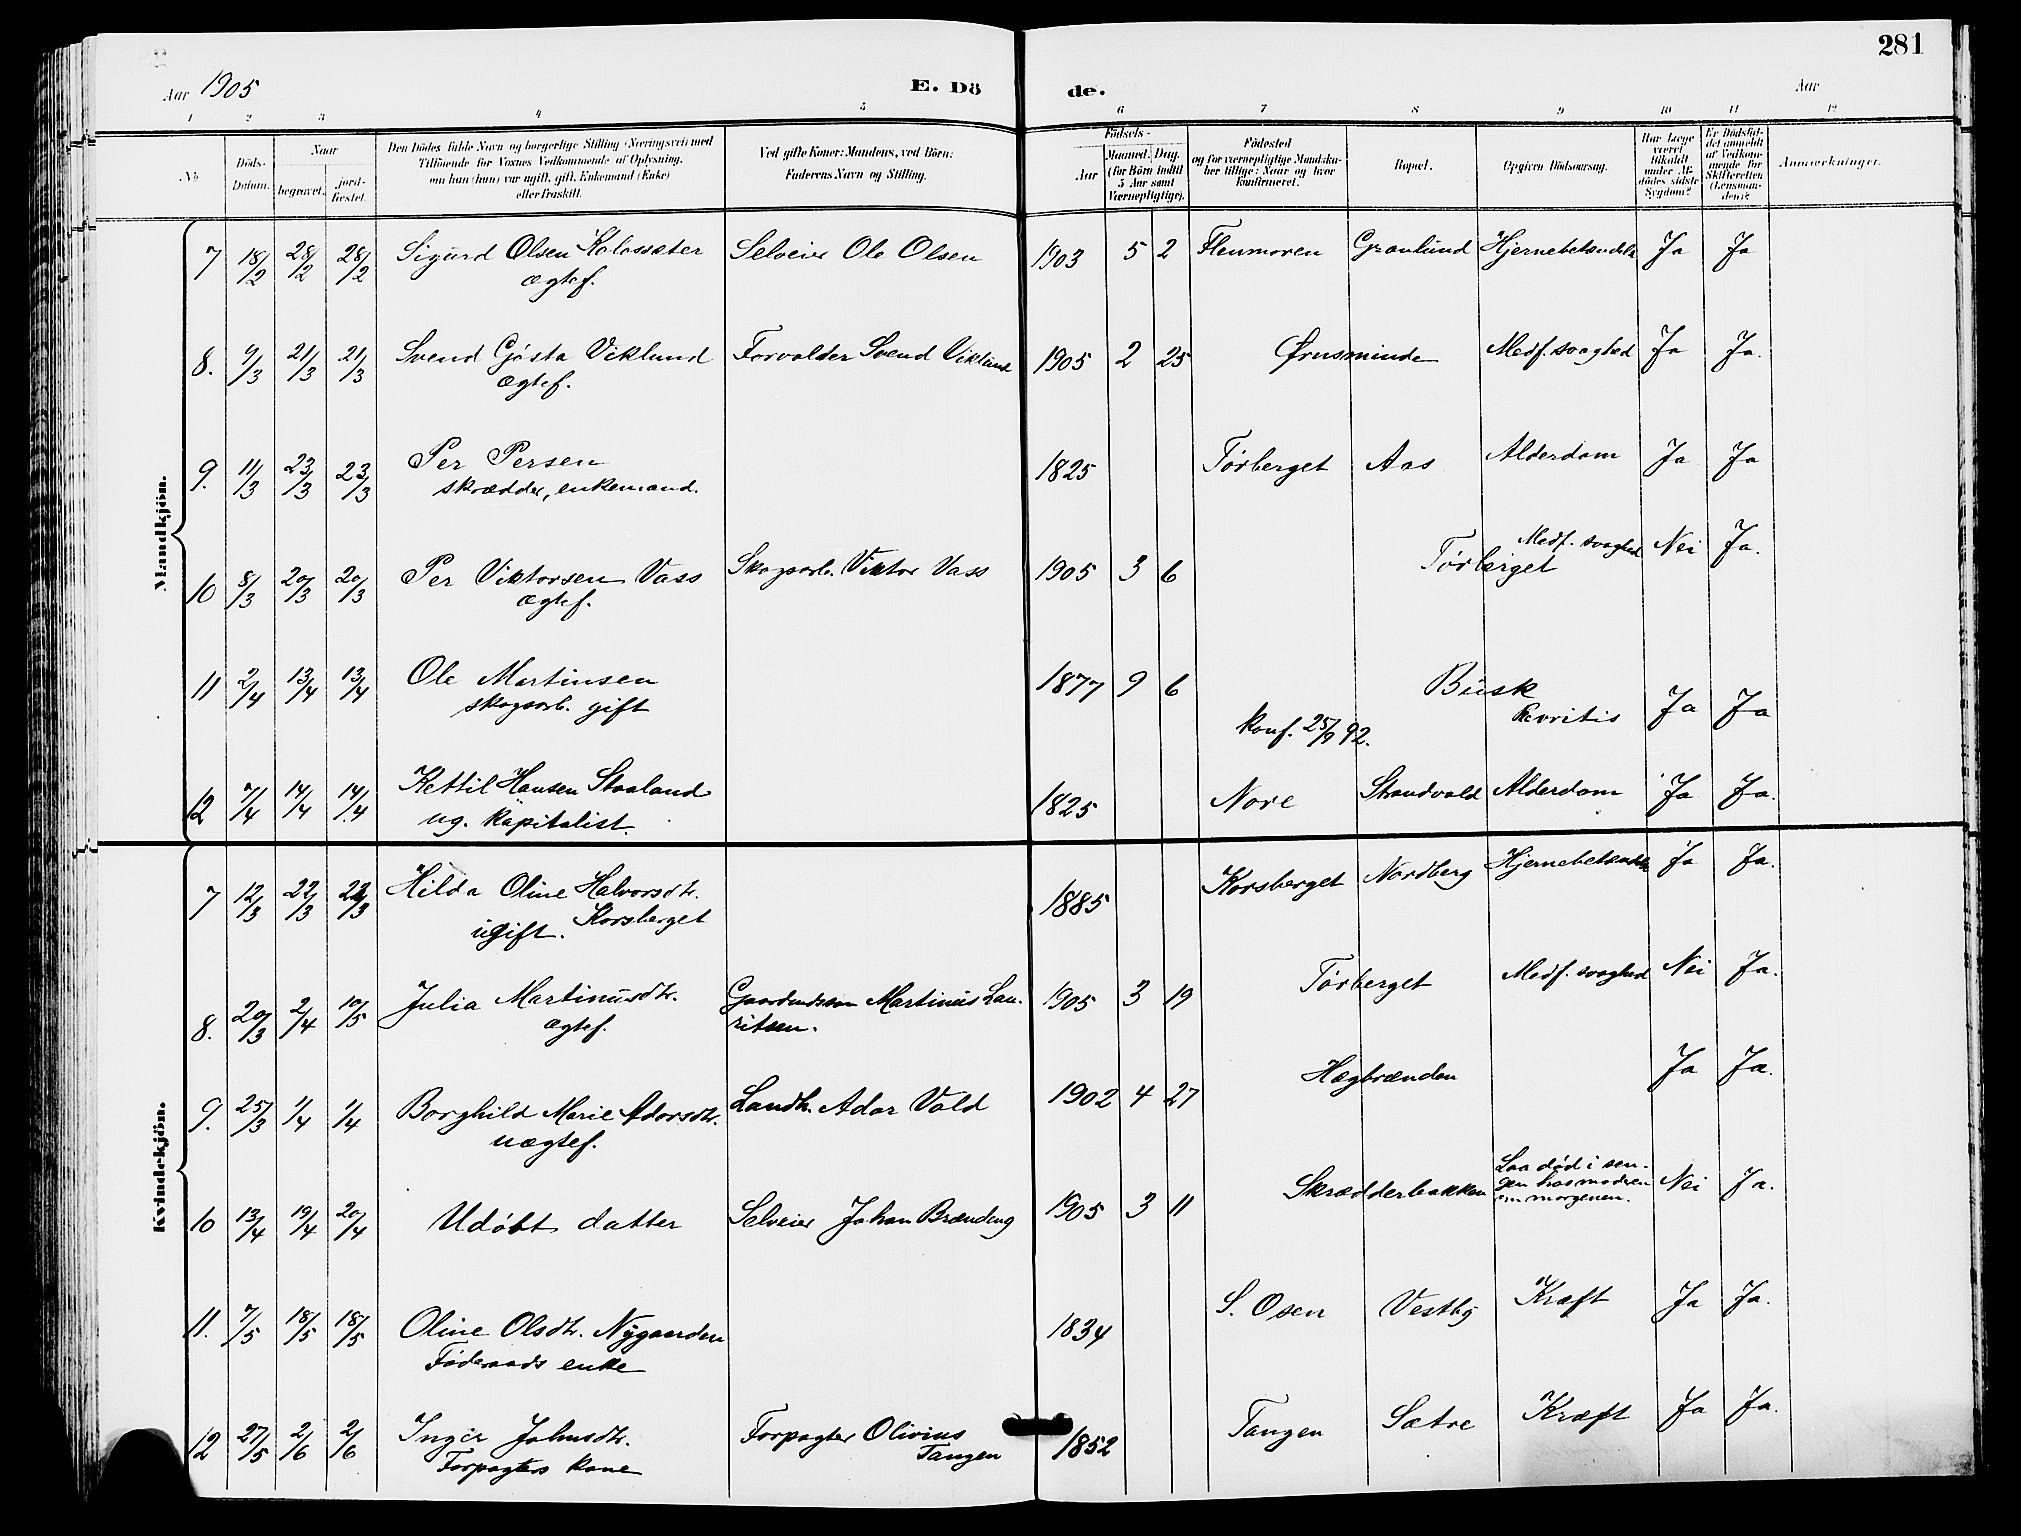 281
Aar 1905
E. Dö
de.
Aar
1 2 3 4 5 6 7 8 9 10 11 12
No
Döds-Datum.
Naar
begravet.
jord-fæstet.
Den Dödes fulde Navn og borgerlige Stilling (Næringsvei) med
Tilföiende for Voxnes Vedkommende af Oplysning,
om han (hun) var ugift, gift, Enkemand (Enke)
eller fraskilt.
Ved gifte Koner: Mandens, ved Börn:
Faderens Navn og Stilling.
Födsels-
Aar
Maaned. Dag.
(for Börn indtil
5 Aar samt
Værnepligtige).
Födested
og for værnepligtige Mandska-
ber tillige: Naar og hvor
konfirmeret.
Bopæl.
Opgiven Dödsaarsag.
Har Læge
været
tilkaldt
under Af-
dödes sidste
Sygdom?
Er Dödsfal-
det anmeldt
af Vedkom-
mende for
Skifteretten
(Lensman-
den)?
Anmærkninger.
Mandkjön.
7 18/2 28/2 28/2 Sigurd Olsen Kolossæter Selveier Ole Olsen 1903 5 2 Flenmoen Grønlund Hjernebetændelse Ja Ja
ægtef.
8. 9/3 21/3 21/3 Svend Gösta Viklund Forvalder Svend Viklund 1905 2 25 Ørnsminde Medf. svaghed Ja Ja.
ægtef.
9. 11/3 23/3 23/3 Per Persen 1825 Törberget Aas Alderdom Ja Ja
skrædder, enkemand.
10 8/3 20/3 20/3 Per Viktorsen Vass Skogsarb. Viktor Vass 1905 3 6 Törberget Medf. svaghed Nei Ja.
ægtef.
11 2/4 13/4 13/4 Ole Martinsen 1877 9 6 Busk Ja Ja
skogsarb. gift konf. 25/9 92.
12 7/4 14/4 14/4 Kettil Hansen Staaland 1825 Nore Strandvold Alderdom Ja Ja.
ug. kapitalist.
Kvindekjön.
7 12/3 22/3 22/3 Hilda Oline Halvorsdtr. 1885 Korsberget Nordberg Hjernebetændelse Ja Ja.
ugift. Korsberget
8. 20/3 2/4 10/5 Julia Martinusdtr. Gaardmdssøn Martinus Lau- 1905 3 19 Törberget Medf. svaghed Nei Ja.
ægtef. ritsen.
9. 25/3 1/4 1/4 Borghild Marie Adorsdtr. Landh. Ador Vold 1902 4 27 Hægbrænden Ja Ja.
uægtef.
10 13/4 19/4 20/4 Udöbt datter Selveier Johan Brændeng 1905 3 11 Skrædderbakken Laa död i sen-
gen hos moderen
om morgenen. Nei Ja.
11. 7/5 18/5 18/5 Oline Olsdtr. Nygaarden 1834 S. Osen Vestby Kræft Ja Ja.
Föderaads enke
12 27/5 2/6 2/6 Inger Johnsdtr. Forpagter Olivius 1852 Tangen Sætre Kræft Ja Ja.
Forpagters kone Tangen